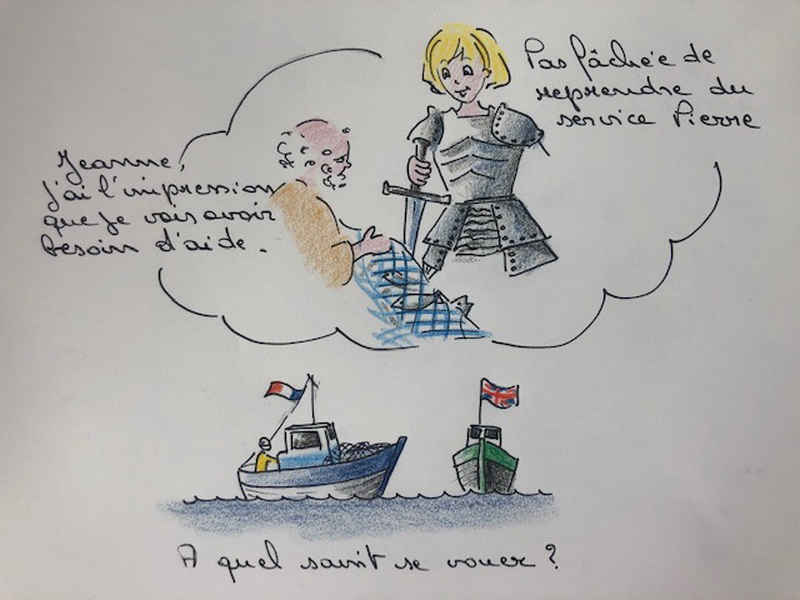 Jeanne,
j'ai l'impression
que je vais avoir
besoin d'aide.
Pas fâchée de
reprendre du
service Pierre
A quel saint se vouer ?